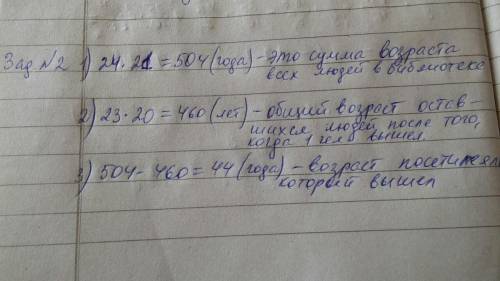 Зад №2 1) 24 · 21 = 504 (года) - это сумма возраста
всех людей в библиотеке
2) 23 · 20 = 460 (лет) - общий возраст остав-
шихся людей после того,
когда 1 чел вышел.
3) 504 - 460 = 44 (года) - возраст посетителя
который вышел